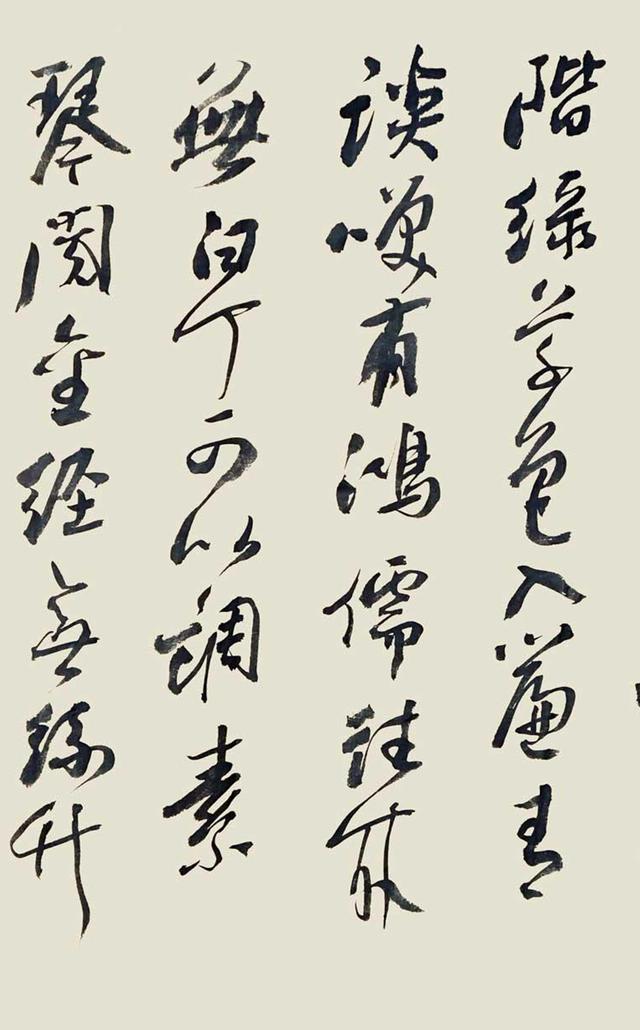 階綠草色入簾青
談咲有鴻儒往來
無白丁可以調素
琴閱金經無絲竹